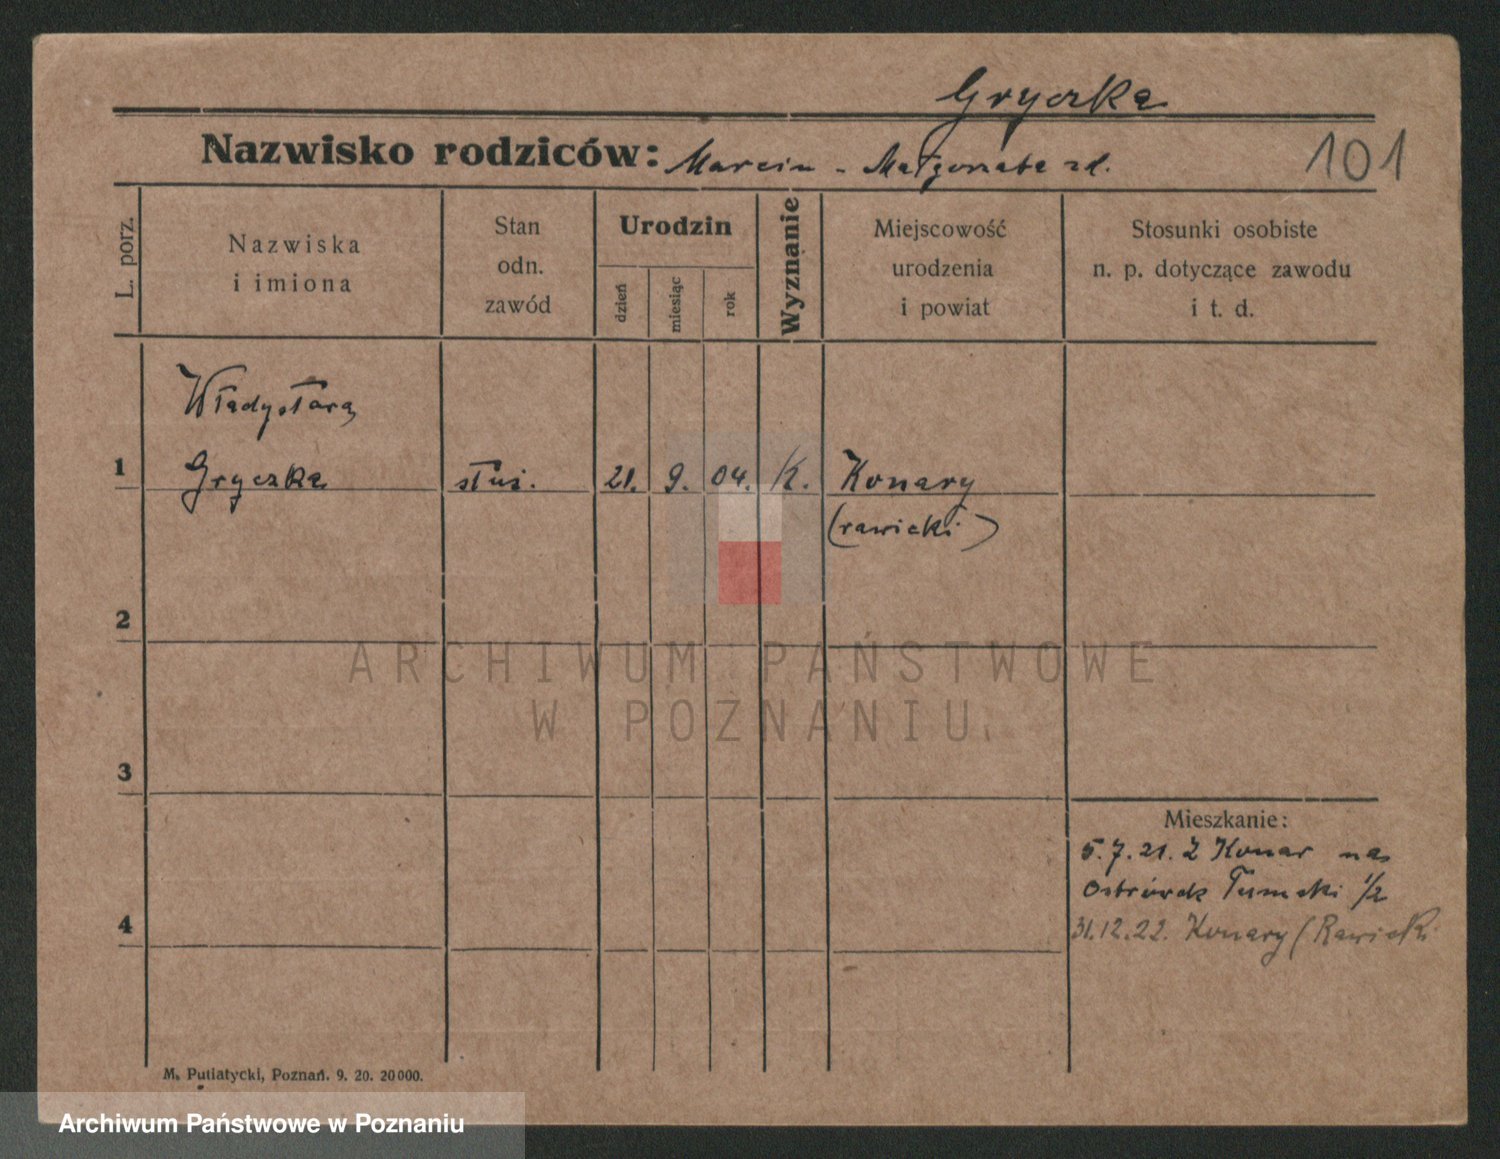 Gryczka
Nazwisko rodziców: Marcin - Małgorzata zd.
101
L. porz.
Nazwiska
i imiona
Stan
odn.
zawód
Urodzin
dzień
miesiąc
rok
Wyznanie
Miejscowość
urodzenia
i powiat
Stosunki osobiste
n. p. dotyczące zawodu
i t. d.
Władysława
1 Gryczka służ. 21. 9. 04. K. Konary
(rawicki)
2
ARCHIWUM PAŃSTWOWE
W POZNANIU
3
Mieszkanie:
5.7.21. Z Konar na
Ostrówek Tumski 1/2
31.12.22. Konary (Rawicki
4
M. Putiatycki, Poznań. 9. 20. 20000.
Archiwum Państwowe w Poznaniu